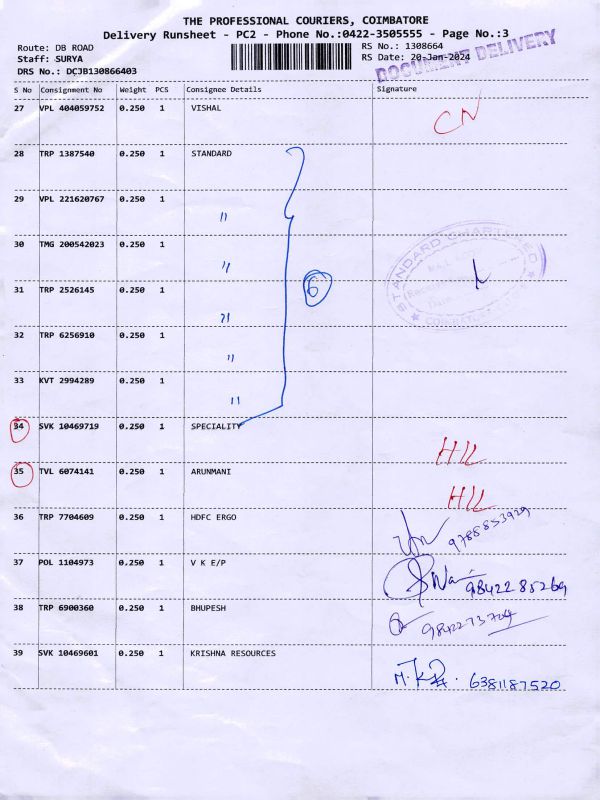 THE PROFESSIONAL COURIERS, COIMBATORE
Delivery Runsheet - PC2 - Phone No.:0422-3505555 - Page No.:3
Route: DB ROAD RS No.: 1308664
Staff: SURYA RS Date: 20-Jan-2024
DRS No.: DCJB130866403
DOCUMENT DELIVERY
S No Consignment No Weight PCS Consignee Details Signature
27 VPL 404059752 0.250 1 VISHAL CN
28 TRP 1387540 0.250 1 STANDARD
29 VPL 221620767 0.250 1 "
30 TMG 200542023 0.250 1 "
STANDARD CHARTERED
6
31 TRP 2526145 0.250 1 "
32 TRP 6256910 0.250 1 "
33 KVT 2994289 0.250 1 "
34 SVK 10469719 0.250 1 SPECIALITY HLL
35 TVL 6074141 0.250 1 ARUNMANI HLL
36 TRP 7704609 0.250 1 HDFC ERGO 9788853929
37 POL 1104973 0.250 1 V K E/P 9842285269
38 TRP 6900360 0.250 1 BHUPESH 9842273704
39 SVK 10469601 0.250 1 KRISHNA RESOURCES 6381187520